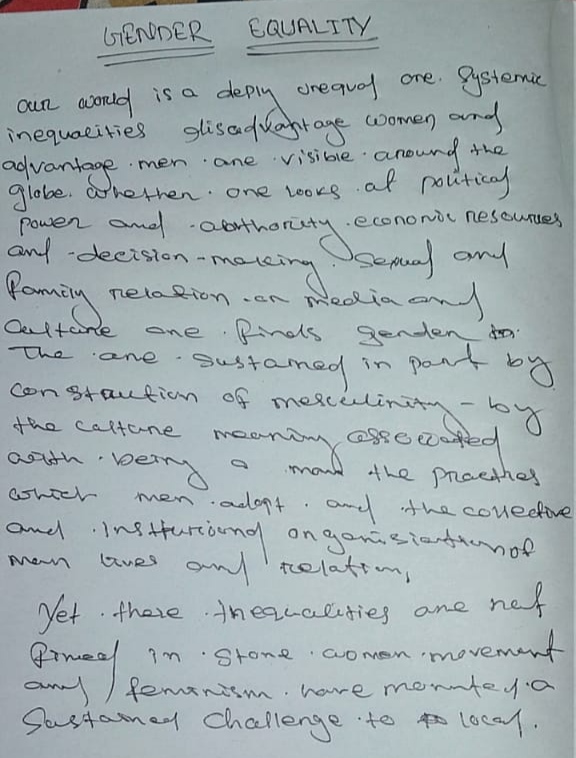 GENDER EQUALITY
our world is a deply unequal one. Systemic
inequalities disadvantage women and
advantage men are visible around the
globe. whether one looks at political
power and authority. economic resources
and -decision-making. Sexual and
family relation or media and
Culture one finds gender
The are sustained in part by
constraution of mesculinity - by
the calture meaning assecoated
with being a man the practhes
which men adopt. and the collective
and organisiation of
men lives and relation,
Yet there inequalities are not
in stone women movement
and feminism have a
Sustained challenge to local.